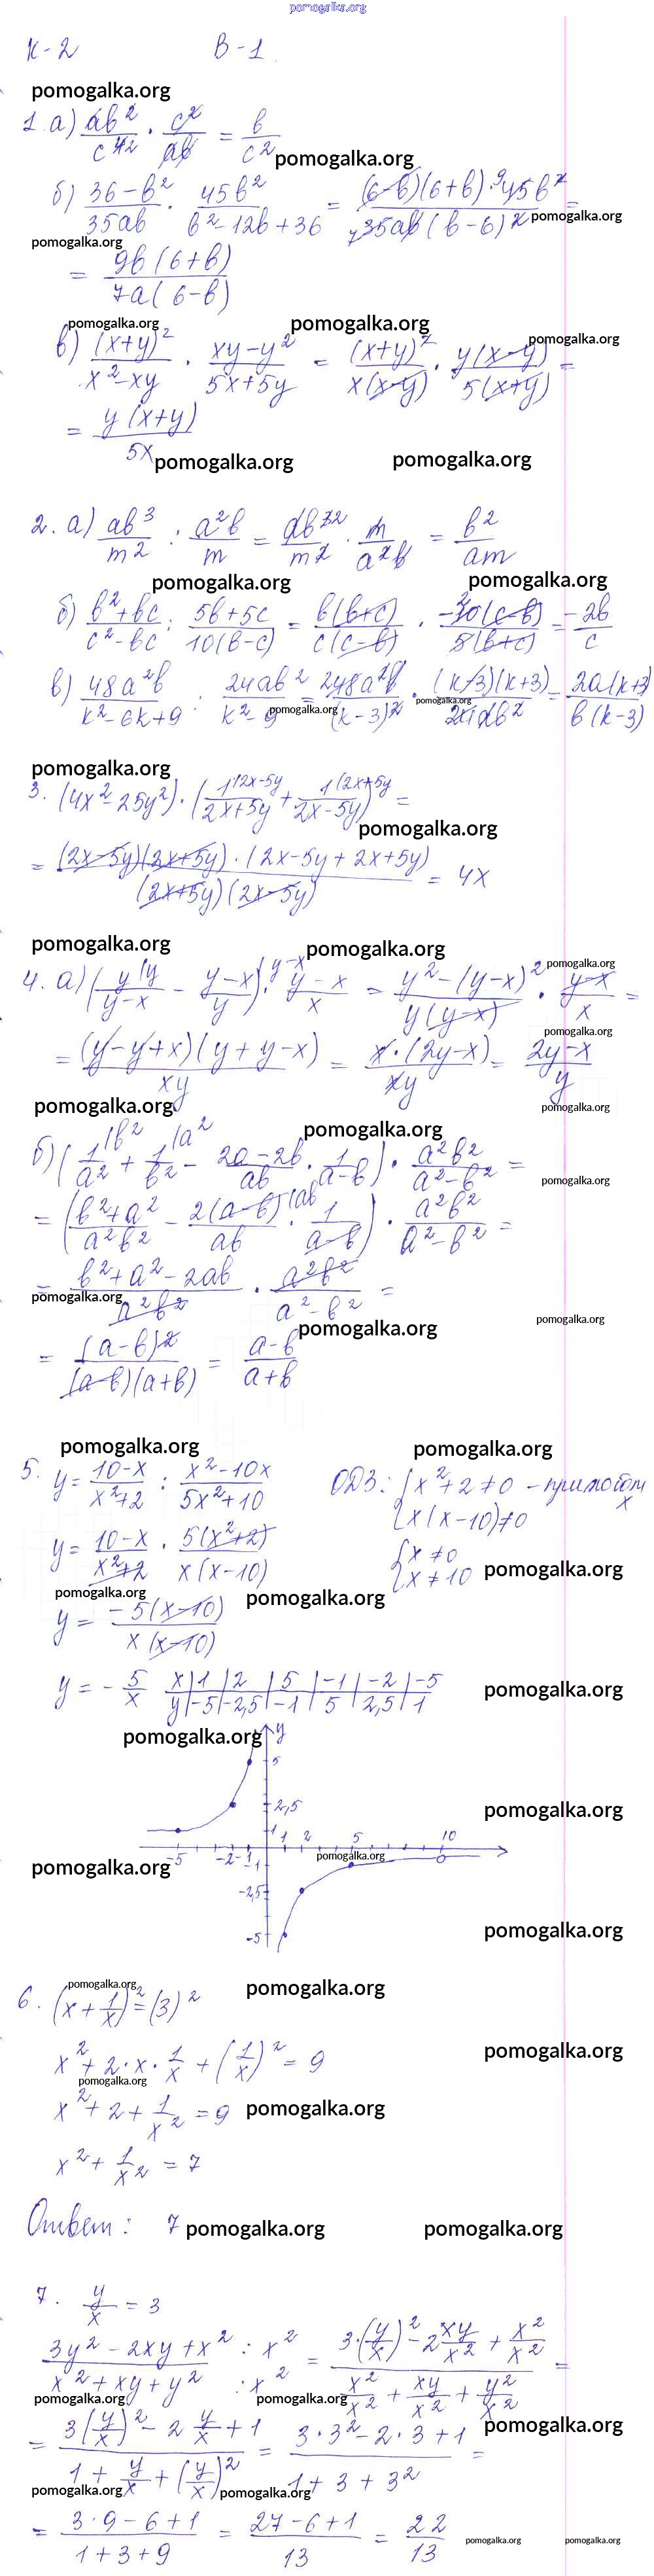 pomogalka.org
К-2 В-1.
pomogalka.org
1. а) ab²/c⁴ · c²/ab = b/c²
pomogalka.org
б) (36-b²)/(35ab) · (45b²)/(b²-12b+36) = ((6-b)(6+b)·9 45b²)/(7 35ab(b-6)²) =
pomogalka.org
pomogalka.org
= 9b(6+b)/(7a(6-b))
pomogalka.org pomogalka.org
в) (x+y)²/(x²-xy) · (xy-y²)/(5x+5y) = (x+y)²/(x(x-y)) · y(x-y)/(5(x+y)) =
pomogalka.org
= y(x+y)/5x
pomogalka.org pomogalka.org
2. а) ab³/m² : a²b/m = ab³²/m² · m/a²b = b²/am
pomogalka.org pomogalka.org
б) (b²+bc)/(c²-bc) : (5b+5c)/(10(b-c)) = b(b+c)/(c(c-b)) · -10(c-b)/(5(b+c)) = -2b/c
в) 48a²b/(k²-6k+9) : 24ab²/(k²-9) = 2 48a²b/(k-3)² · (k-3)(k+3)/24ab² = 2a(k+3)/(b(k-3))
pomogalka.org pomogalka.org
pomogalka.org
3. (4x²-25y²)·(1 (2x-5y/(2x+5y) + 1 (2x+5y/(2x-5y)) =
pomogalka.org
= ((2x-5y)(2x+5y)·(2x-5y+2x+5y))/((2x+5y)(2x-5y)) = 4x
pomogalka.org pomogalka.org
pomogalka.org
4. а) (y (y/(y-x) - y-x (y-x/y) · (y-x)/x = (y²-(y-x)²)/(y(y-x)) · (y-x)/x =
pomogalka.org
= ((y-y+x)(y+y-x))/xy = x·(2y-x)/xy = (2y-x)/y
pomogalka.org pomogalka.org
pomogalka.org
б) (1 (b²/a² + 1 (a²/b² - (2a-2b)/ab · 1/(a-b)) · a²b²/(a²-b²) =
pomogalka.org
= ((b²+a²)/a²b² - 2(a-b) (ab/ab · 1/(a-b)) · a²b²/(a²-b²) =
= (b²+a²-2ab)/a²b² · a²b²/(a²-b²) =
pomogalka.org
pomogalka.org
pomogalka.org
= (a-b)²/((a-b)(a+b)) = (a-b)/(a+b)
pomogalka.org pomogalka.org
5. y = (10-x)/(x²+2) : (x²-10x)/(5x²+10) ОДЗ: { x²+2≠0 - при любом x
x(x-10)≠0
y = (10-x)/(x²+2) · 5(x²+2)/(x(x-10)) { x≠0
x≠10
pomogalka.org
pomogalka.org pomogalka.org
y = -5(x-10)/(x(x-10))
y = -5/x
x | 1 | 2 | 5 | -1 | -2 | -5
y | -5 | -2,5 | -1 | 5 | 2,5 | 1
pomogalka.org
pomogalka.org
y
5
2,5
pomogalka.org
1 1 2 5 10
-5 -2 -1 -1
pomogalka.org pomogalka.org
-2,5
-5
pomogalka.org
pomogalka.org pomogalka.org
6. (x + 1/x)² = (3)²
pomogalka.org
x² + 2·x·1/x + (1/x)² = 9
pomogalka.org
x² + 2 + 1/x² = 9
pomogalka.org
x² + 1/x² = 7
Ответ: 7
pomogalka.org pomogalka.org
7. y/x = 3
(3y²-2xy+x² : x²)/(x²+xy+y² : x²) = (3·(y/x)² - 2 xy/x² + x²/x²)/(x²/x² + xy/x² + y²/x²) =
pomogalka.org pomogalka.org
pomogalka.org
= (3(y/x)² - 2 y/x + 1)/(1 + y/x + (y/x)²) = (3·3²-2·3+1)/(1+3+3²) =
pomogalka.org pomogalka.org
= (3·9-6+1)/(1+3+9) = (27-6+1)/13 = 22/13
pomogalka.org pomogalka.org